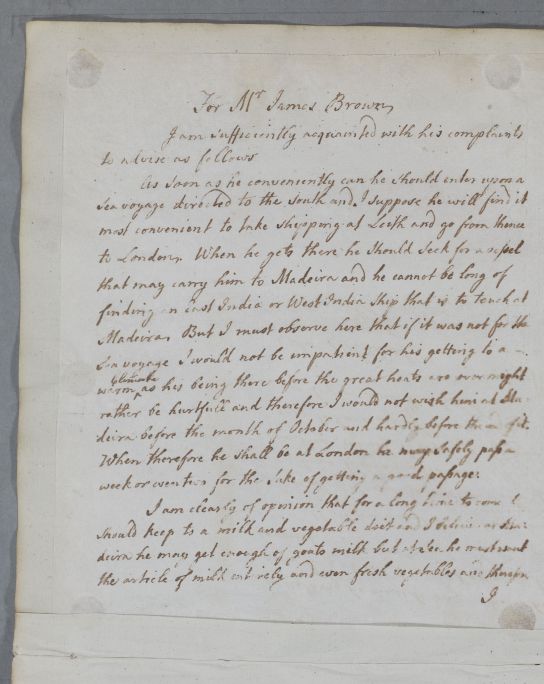 For Mr James Brown
I am sufficiently acquainted with his complaints
to advise as follows
As soon as he conveniently can he should enter upon a
Sea voyage directed to the south and I suppose he will find it
most convenient to take shipping at Leith and go from thence
to London. When he gets there he should seek for a vessel
that may carry him to Madeira and he cannot be long of
finding an East India or West India Ship that is to touch at
Madeira. But I must observe here that if it was not for the
Sea voyage I would not be impatient for his getting to a
climate
warm as his being there before the great heats are over might
rather be hurtfull and therefore I would not wish him at Ma
deira before the month of October and hardly before the of it.
When therefore he shall be at London he may safely pass a
week or even two for the sake of getting a good passage.
I am clearly of opinion that for a long time to come
should keep to a milk and vegetable diet and I believe at Ma
deira he may get enough of goats milk but at Sea he must want
the article of milk entirely and even fresh vegetables and
I